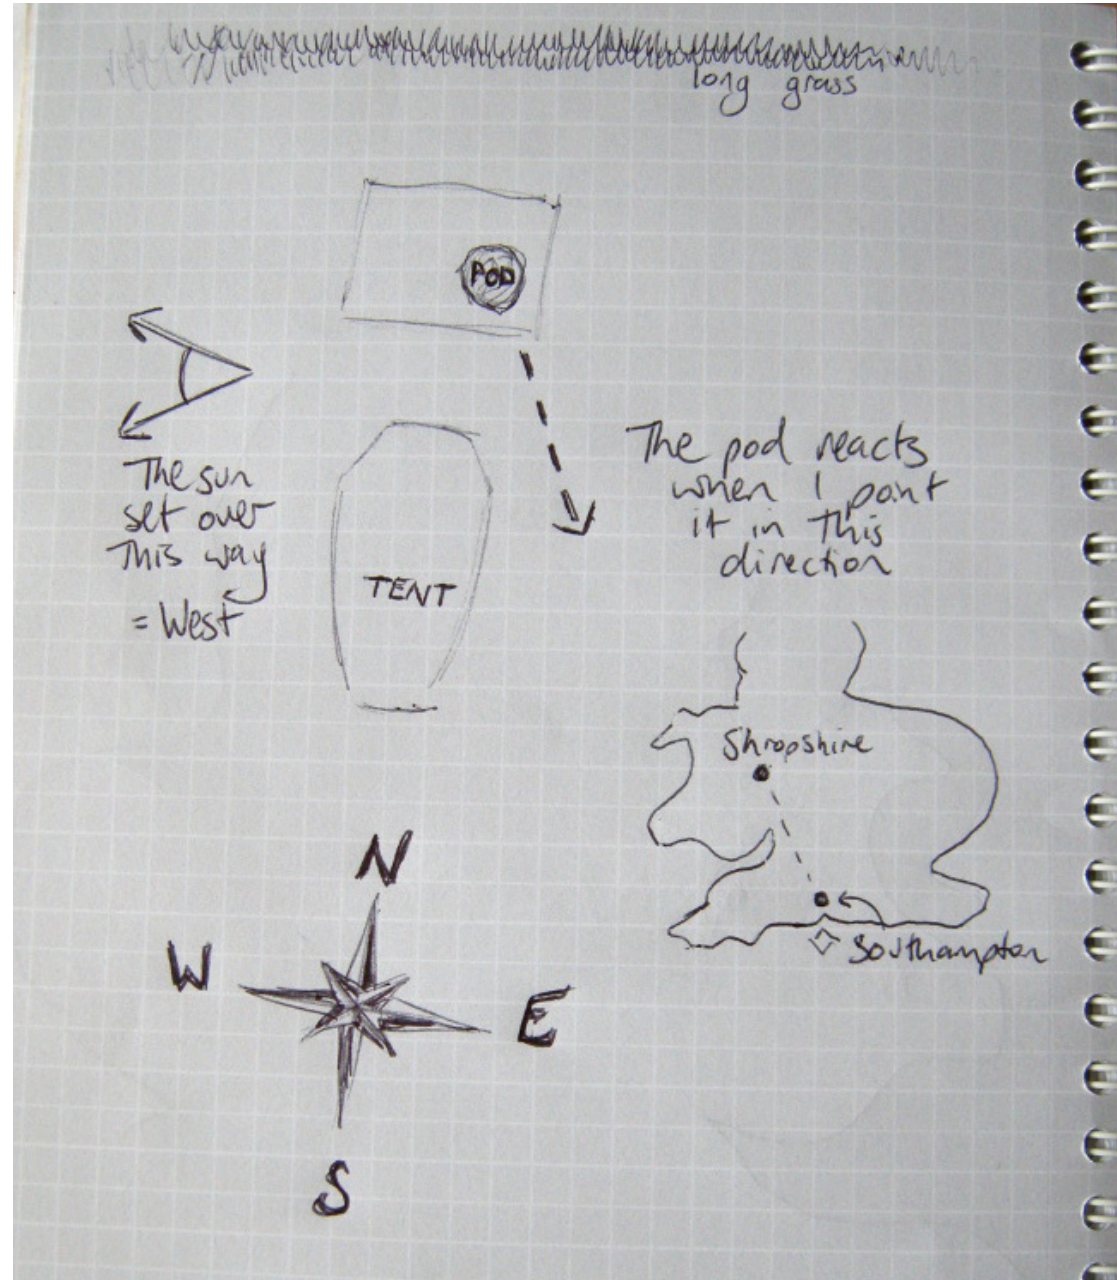 long grass
POD
The sun
set over
this way
= West
The pod reacts
when I point
it in this
direction
TENT
Shropshire
Southampton
N
W
E
S